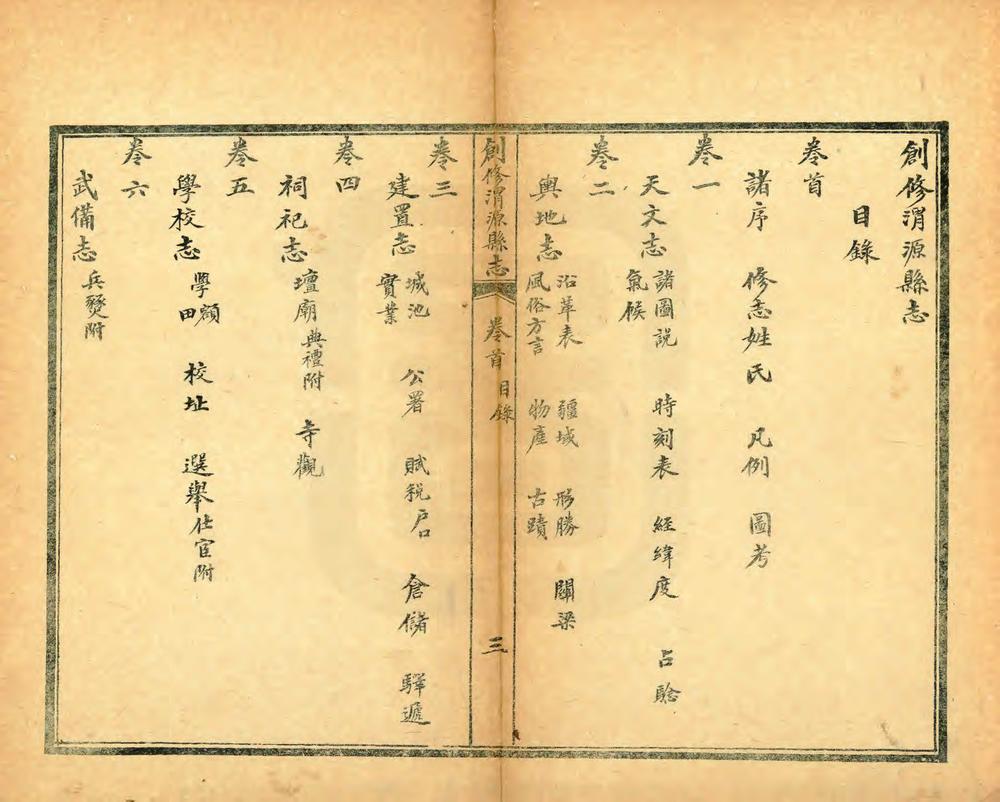 創修渭源縣志
目錄
卷首
諸序 修志姓氏 凡例 圖考
卷一
天文志 諸圖說 時刻表 經緯度 占驗
氣候
卷二
輿地志 沿革表 疆域 形勝 關梁
風俗方言 物產 古蹟
創修渭源縣志 卷首 目錄 三
卷三
建置志 城池 公署 賦稅 戶口 倉儲 驛遞
實業
卷四
祠祀志 壇廟 典禮附 寺觀
卷五
學校志 學額 校址 選舉 仕宦附
學田
卷六
武備志 兵燹附